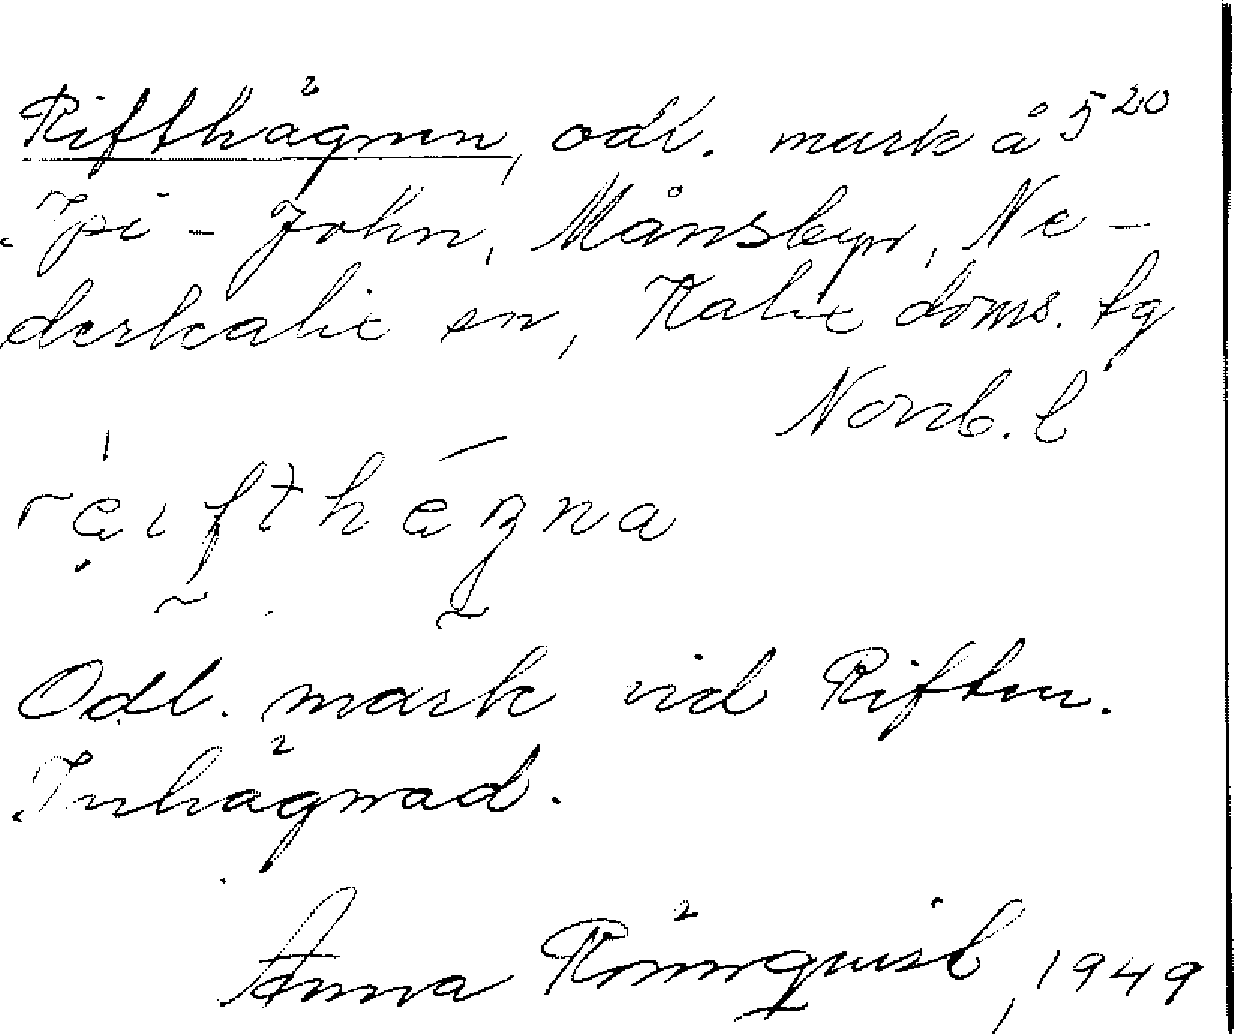 Rifthägnen, odl. mark å 5²⁰
Ipi - John, Månsbyn, Ne-
derkalix sn, Kalix doms. tg
Norrb. l
Odl. mark vid Riften.
Inhägnad.
Anna Rönnquist, 1949